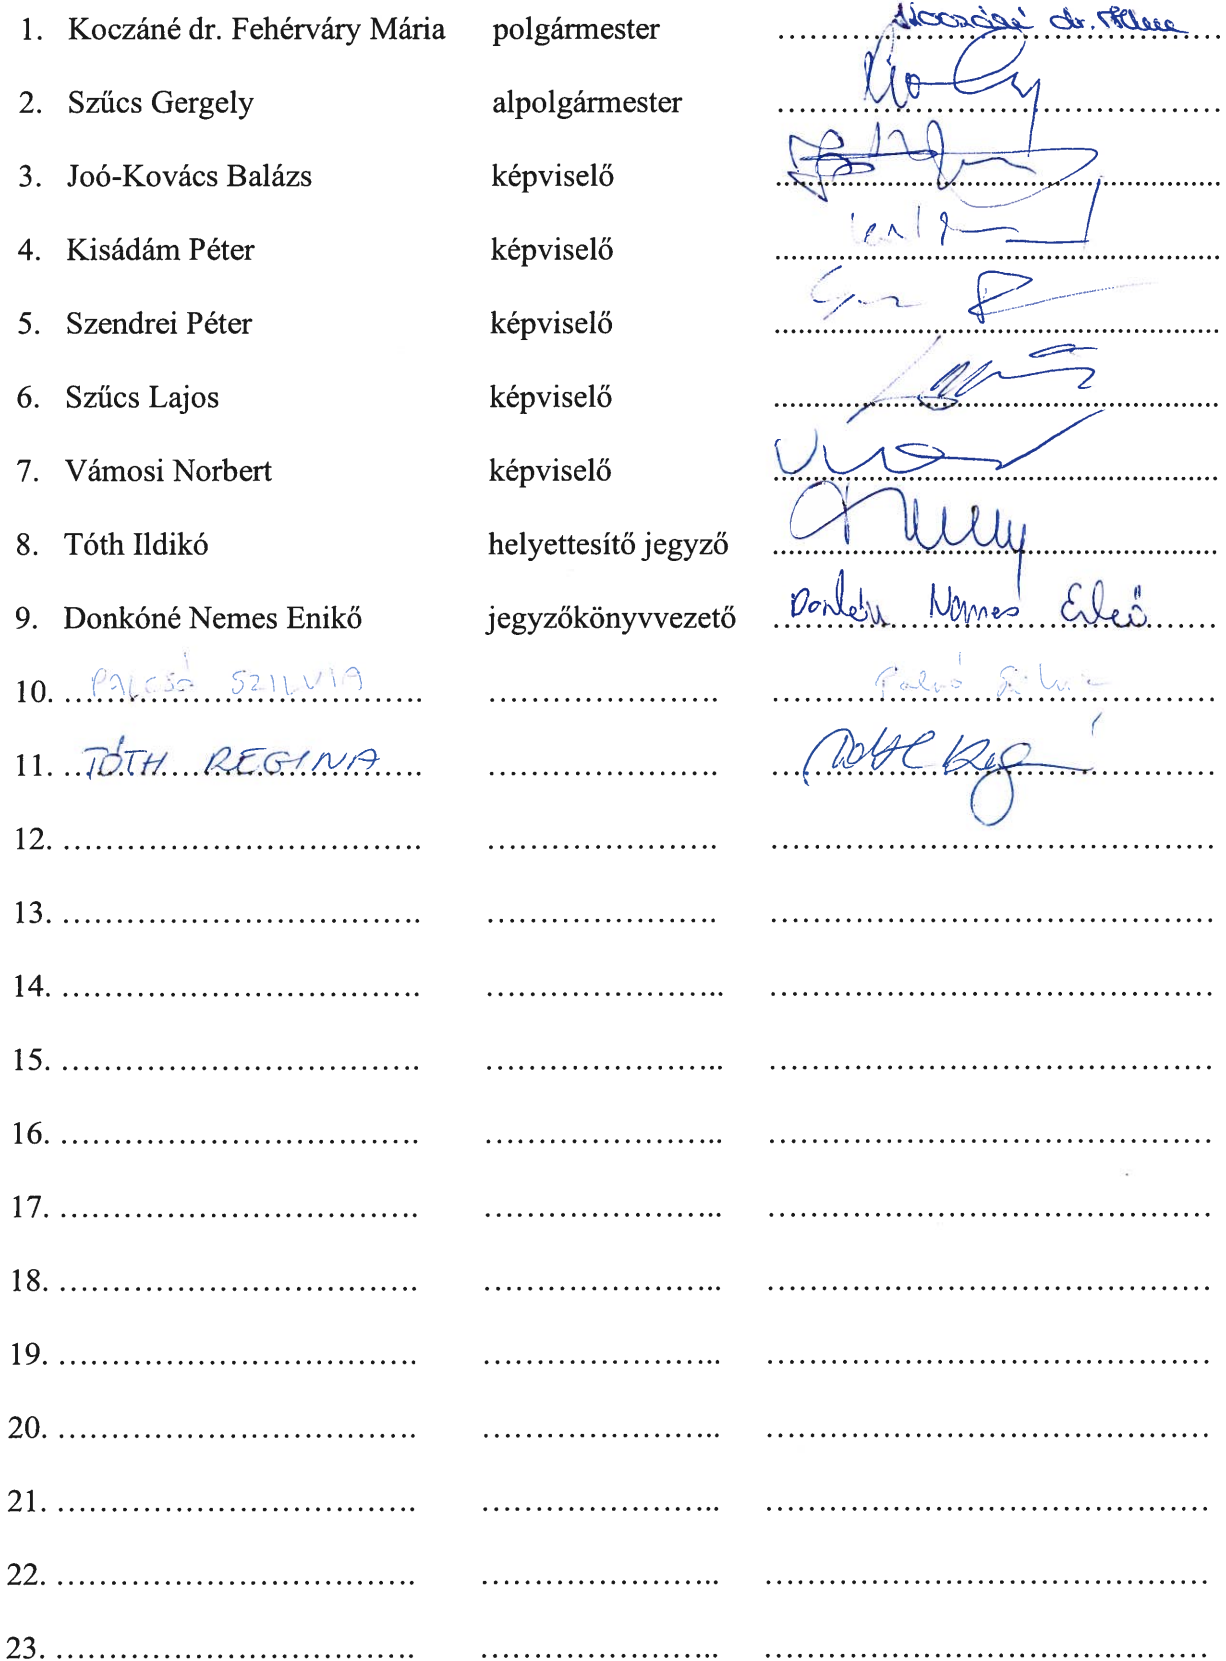 1. Koczáné dr. Fehérváry Mária polgármester ........ Koczáné dr.
2. Szűcs Gergely alpolgármester ........
3. Joó-Kovács Balázs képviselő ........
4. Kisádám Péter képviselő ........
5. Szendrei Péter képviselő ........
6. Szűcs Lajos képviselő ........
7. Vámosi Norbert képviselő ........
8. Tóth Ildikó helyettesítő jegyző ........
9. Donkóné Nemes Enikő jegyzőkönyvvezető Donkóné Nemes Enikő
10. PALCSÓ SZILVIA ........ Palcsó Szilvia
11. TÓTH REGINA ........ Tóth Regina
12. ........
13. ........
14. ........
15. ........
16. ........
17. ........
18. ........
19. ........
20. ........
21. ........
22. ........
23. ........